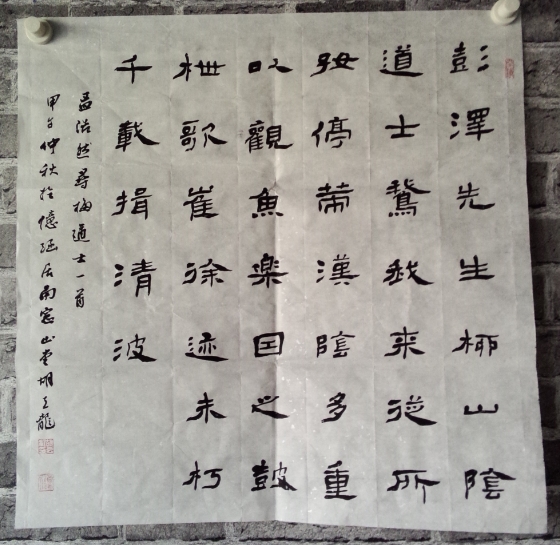 彭澤先生柳山陰
道士鵞我来從所
好停策漢陰多重
以觀魚楽囙之鼓
枻歌崔徐迹未朽
千載揖清波
孟浩然尋梅道士一首
甲午仲秋於憶涵居南窓山胡龍